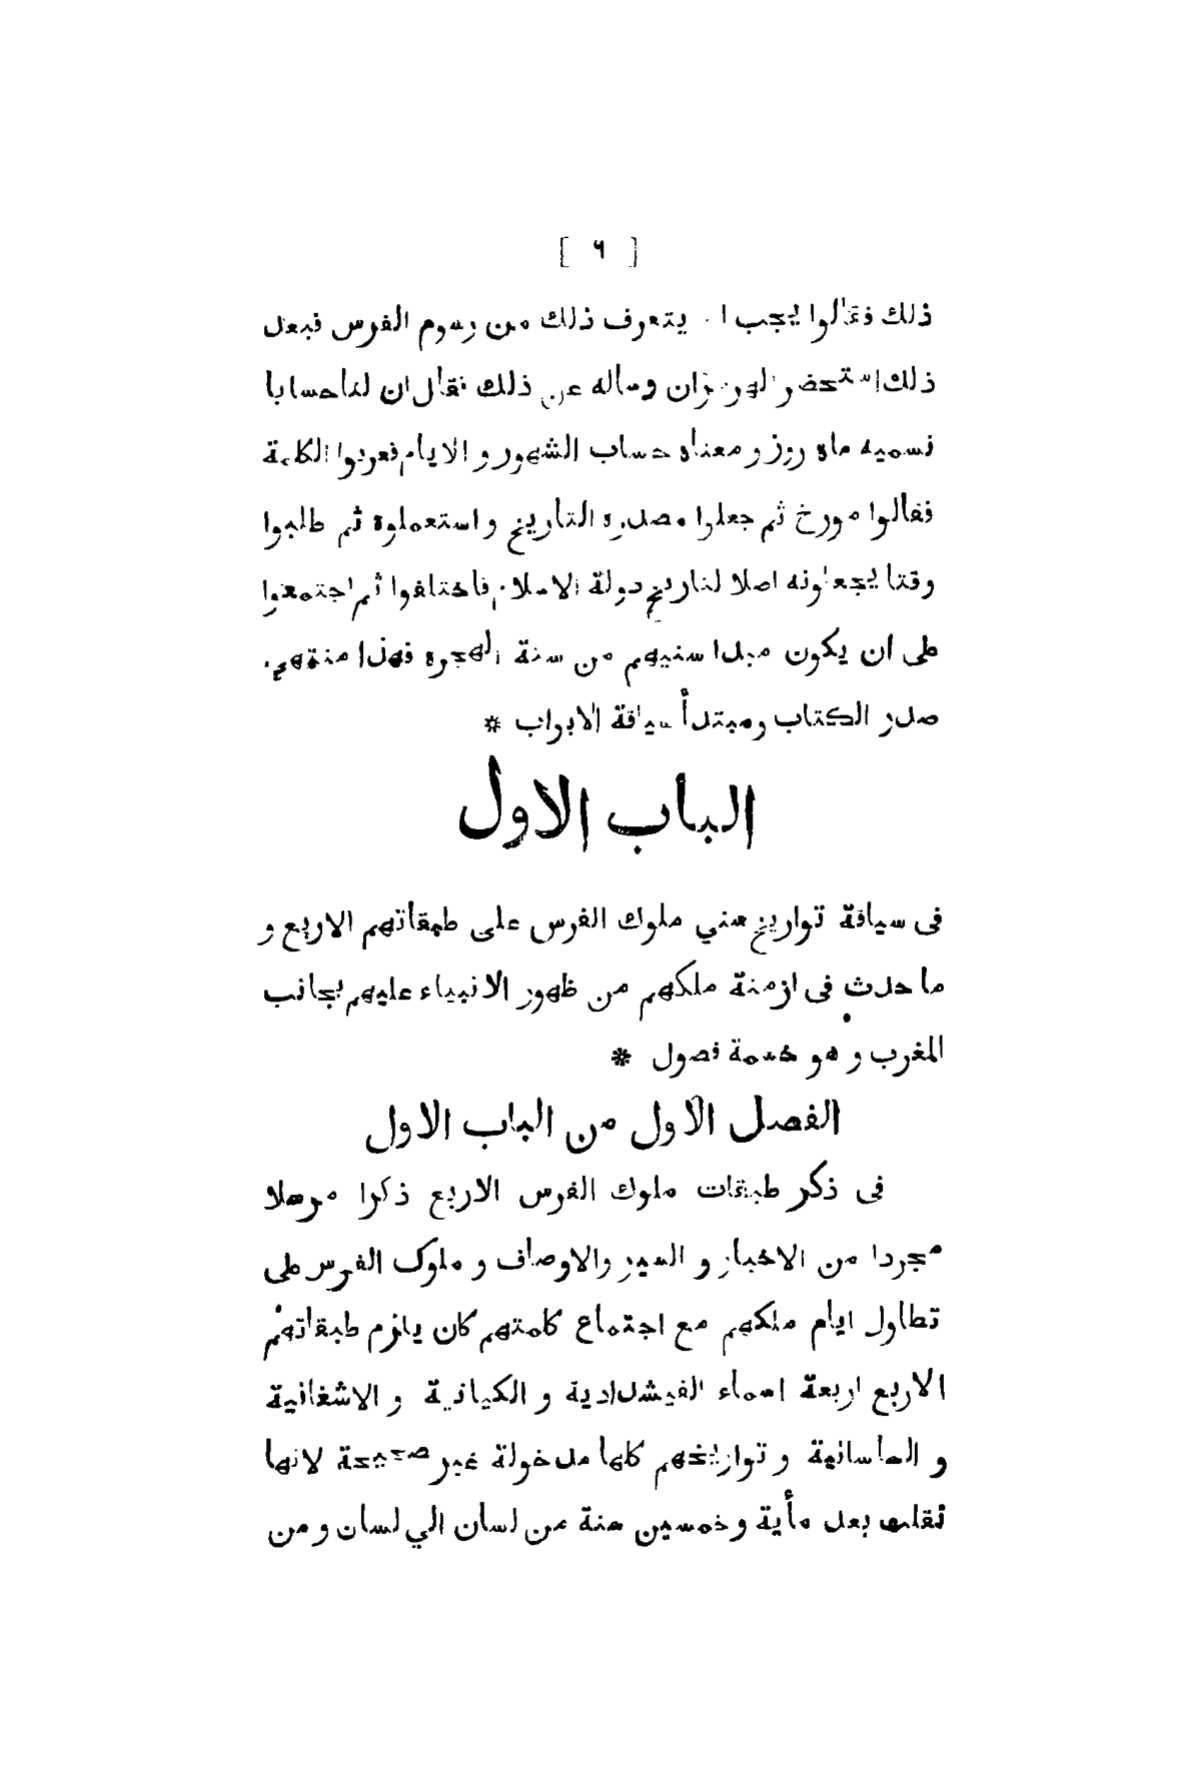 [ ٩ ]
ذلك فقالوا يجب ان يتعرف ذلك من رسوم الفرس فبعد
ذلك استحضر الهرمزان وساله عن ذلك فقال ان لنا حسابا
نسميه ماه روز و معناه حساب الشهور و الايام فعربوا الكلمة
فقالوا مورخ ثم جعلوا مصدره التاريخ و استعملوه ثم طلبوا
وقتا يجعلونه اصلا لتاريخ دولة الاسلام فاختلفوا ثم اجتمعوا
على ان يكون مبدا سنيهم من سنة الهجرة فهذا منتهى
صدر الكتاب ومبتدأ سياقة الابواب *
الباب الاول
فى سياقة تواريخ سني ملوك الفرس على طبقاتهم الاربع و
ما حدث فى ازمنة ملكهم من ظهور الانبياء عليهم بجانب
المغرب و هو خمسة فصول *
الفصل الاول من الباب الاول
فى ذكر طبقات ملوك الفرس الاربع ذكرا مرسلا
مجردا من الاخبار و السير والاوصاف و ملوك الفرس على
تطاول ايام ملكهم مع اجتماع كلمتهم كان يلزم طبقاتهم
الاربع اربعة اسماء الفيشدادية و الكيانية و الاشغانية
و الساسانية و تواريخهم كلها مدخولة غير صحيحة لانها
نقلت بعد مأية وخمسين سنة من لسان الي لسان و من